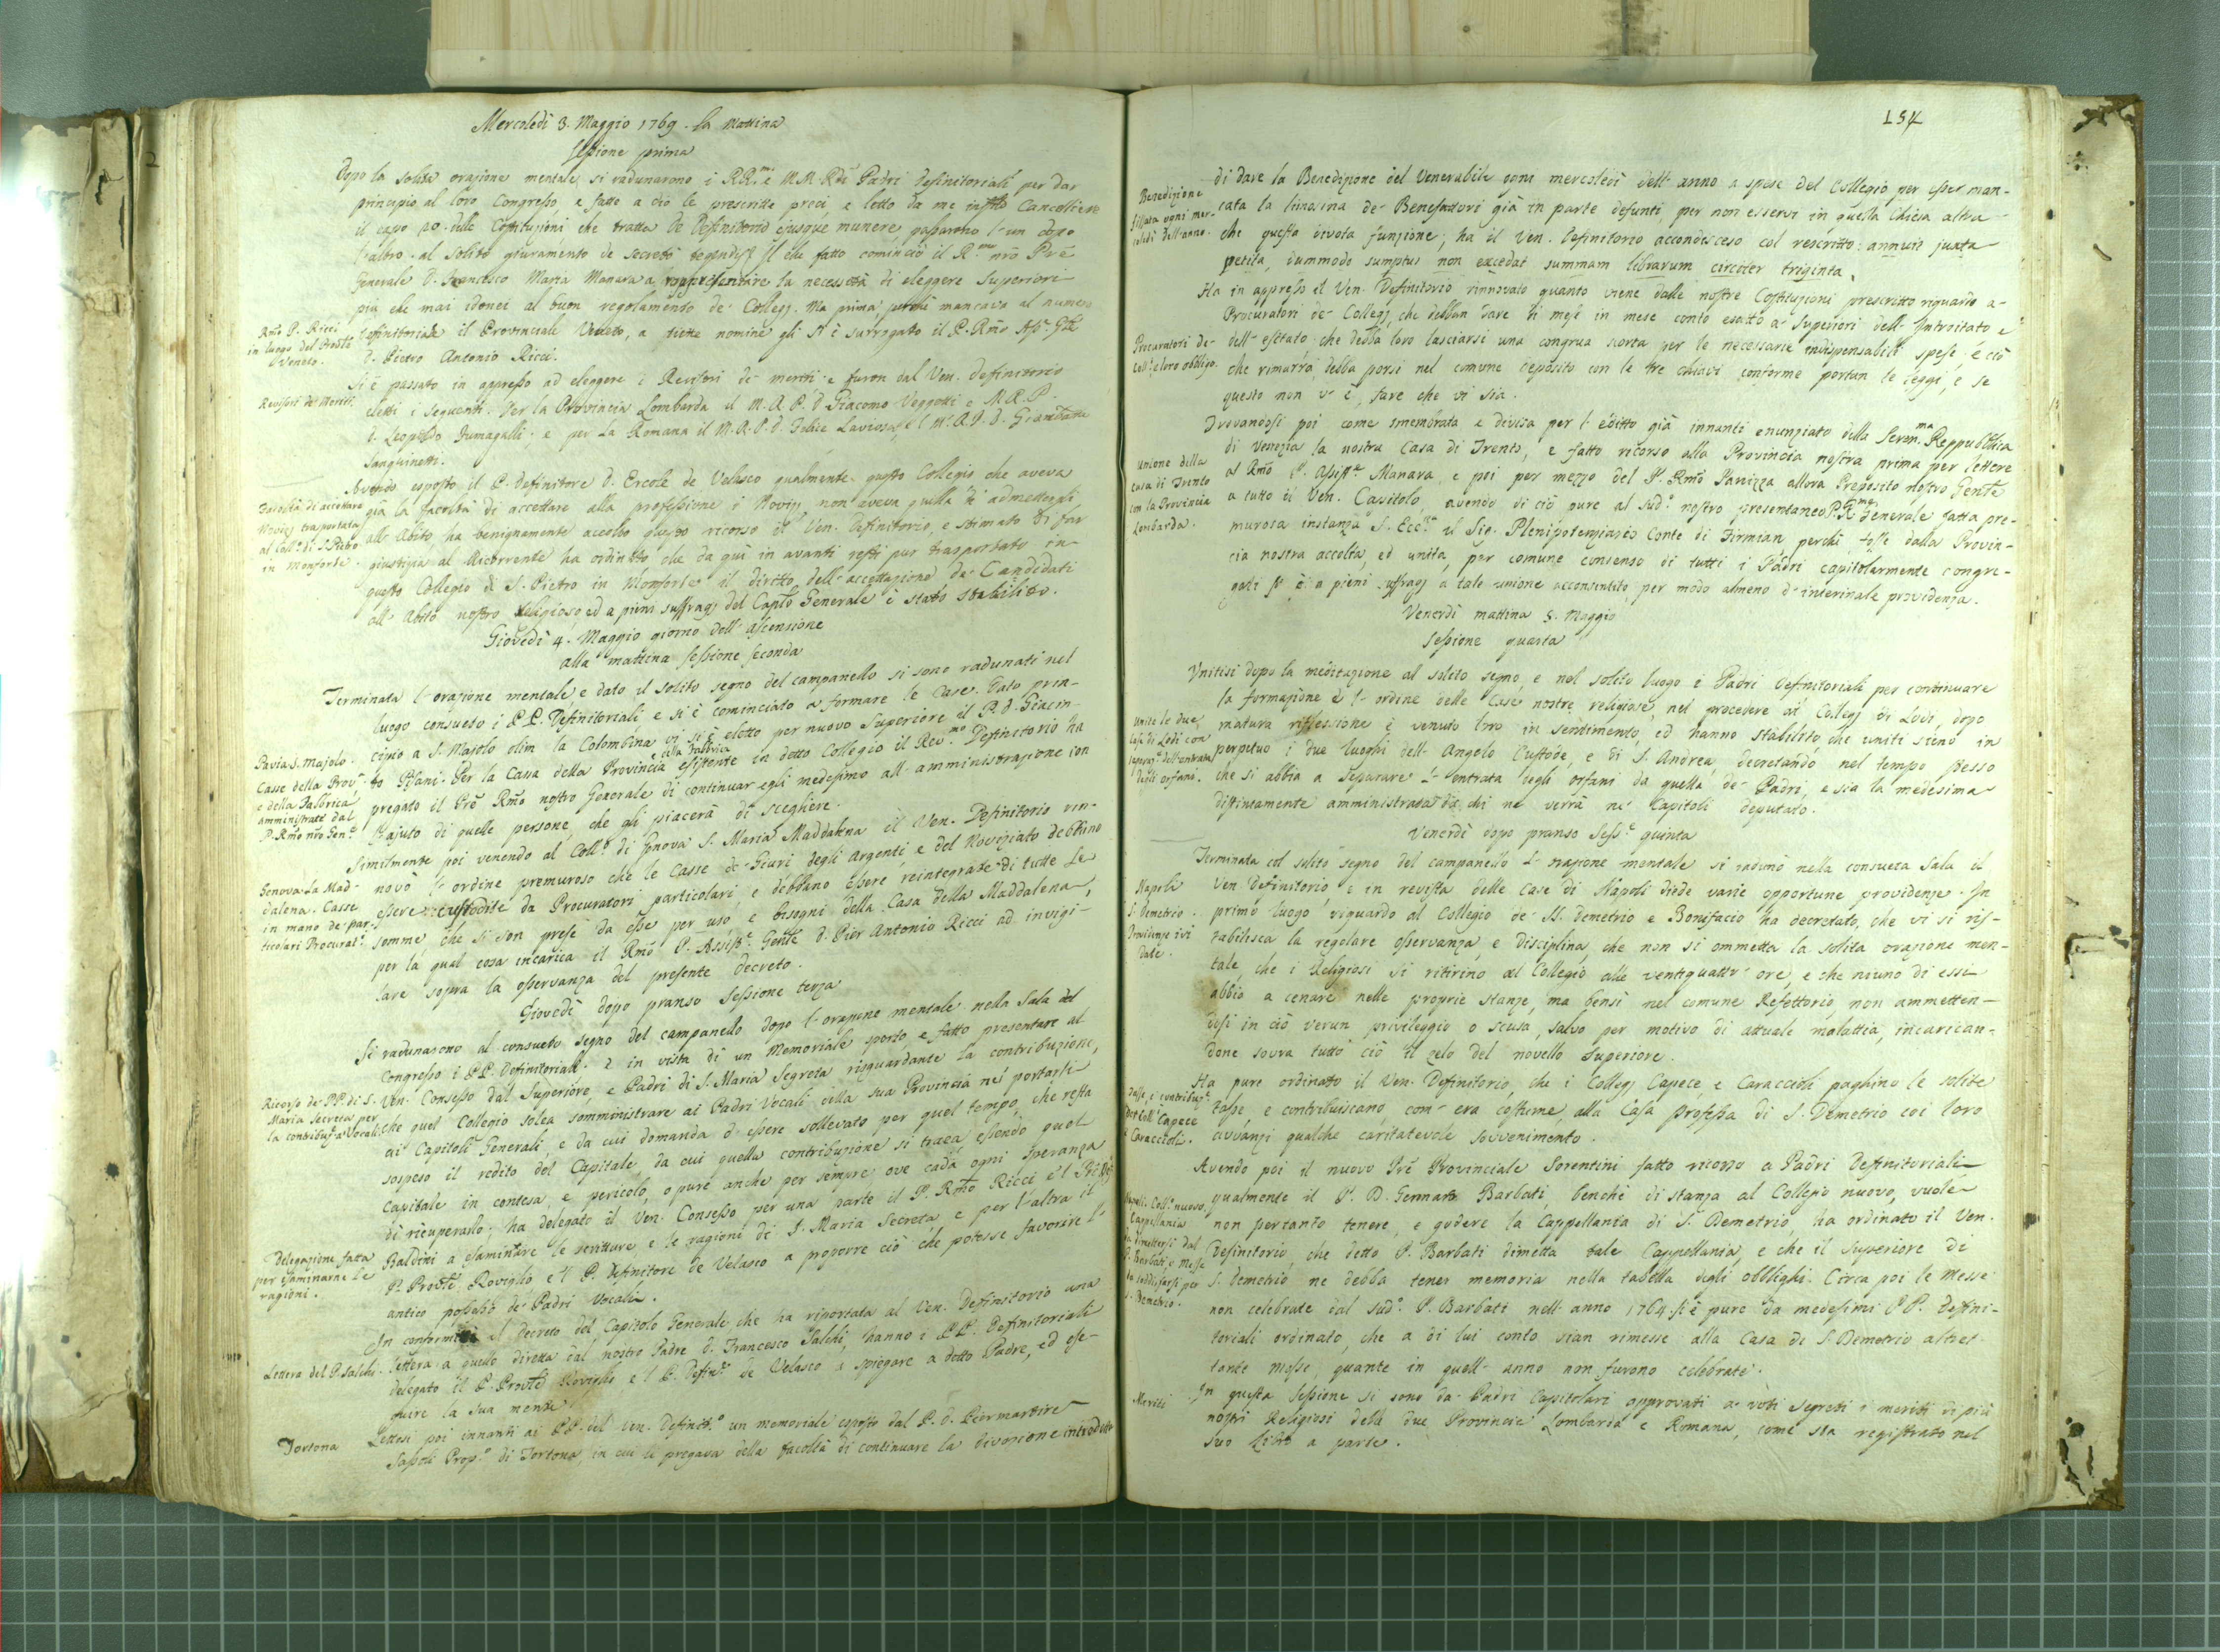 Mercoledì 3. Maggio 1769. la Mattina
Sessione prima
Dopo la solita orazione mentale si radunarono i RR.mi e M.M. Rdi Padri Definitoriali per dar
principio al loro Congresso, e fatte a ciò le prescritte preci, e letto da me infrto Cancelliere
il capo 20. delle Costituzioni, che tratta De Definitorio ejusque munere passarono l'un dopo
l'altro al solito giuramento de secretis tegendis. Il che fatto cominciò il R.mo nro Pre
Generale D. Francesco Maria Manara a rappresentare la necessità di eleggere Superiori
più che mai idonei al buon regolamento de' Collegj. Ma prima, perchè mancava al numero
Rmo P. Ricci
in luogo del Provle
Veneto.
Definitoriale il Provinciale Veneto, a viette nomine gli si è surrogato il P. Rmo Asse. Gle
D. Pietro Antonio Ricci.
Si è passato in appresso ad eleggere i Revisori de' meriti e furon dal Ven. Definitorio
Revisori de' Meriti.
eletti i seguenti. Per la Provincia Lombarda il M.R.P. D. Giacomo Vegotti e M.R.P.
D. Leopoldo Fumagalli; e per la Romana il M.R.P. D. Felice e 'l M.R.P. D. Giambatta
Sanguinetti.
Avendo esposto il P. Definitore D. Ercole de Velasco qualmente questo Collegio che aveva
Facoltà di accettare
Novizj trasportata
al Coll.o di S. Pietro
in Monforte.
già la facoltà di accettare alla professione i Novizj non aveva quella di admettergli
all'Abito, ha benignamente accolto questo ricorso il Ven. Definitorio, e stimato di far
giustizia al Ricorrente ha ordinato che da qui in avanti resti pur trasportato in
questo Collegio di S. Pietro in Monforte il diritto dell'accettazione de' Candidati
all'Abito nostro Religioso, ed a pieni suffragj del Caplo Generale è stato stabilito.
Giovedì 4. Maggio giorno dell'Ascensione
alla mattina Sessione seconda
Terminata l'orazione mentale, e dato il solito segno del campanello si sono radunati nel
luogo consueto i P.P. Definitoriali e si è cominciato a formare le Case. Dato prin-
cipio a S. Majolo olim la Colombina vi si è eletto per nuovo Superiore il P. D. Giacin-
Pavia S. Majolo.
Casse della Prov.a
e della Fabbrica
amministrate dal
P. Rmo nro Gen.e
to Pisani. Per la Cassa della Provincia e della Fabbrica esistente in detto Collegio il Rev.mo Definitorio ha
pregato il Pre Rmo nostro Generale di continuar egli medesimo all'amministrazione con
l'ajuto di quelle persone, che gli piacerà di scegliere.
Similmente poi venendo al Coll.o di Genova S. Maria Maddalena il Ven. Definitorio rin-
Genova La Mad-
dalena. Casse
in mano de' par-
ticolari Procurat.i
novò l'ordine premuroso che le Casse de' Giuri degli Argenti, e del Noviziato debbano
essere custodite da Procuratori particolari, e debbano essere reintegrate di tutte le
somme, che si son prese da esse per uso, e bisogni della Casa della Maddalena,
per la qual cosa incarica il Rmo P. Assist.e Genle D. Pier Antonio Ricci ad invigi-
lare sopra la osservanza del presente decreto.
Giovedì dopo pranso Sessione terza
Si radunarono al consueto segno del campanello dopo l'orazione mentale nella Sala del
Congresso i P.P. Definitoriali. E in vista di un Memoriale sporto, e fatto presentare al
Ven. Consesso dal Superiore, e Padri di S. Maria Segreta risguardante la contribuzione,
Ricorso de' PP. di S.
Maria Secreta per
la contribuz.e a' Vocali.
che quel Collegio solea somministrare ai Padri Vocali della sua Provincia nel portarsi
ai Capitoli Generali, e da cui domanda d'essere sollevato per quel tempo, che resta
sospeso il redito del Capitale, da cui quella contribuzione si traea, essendo quel
Capitale in contesa, e pericolo, o pure anche per sempre, ove cada ogni speranza
di ricuperarlo; ha delegato il Ven. Consesso per una parte il P. Rmo Ricci e 'l
Delegazione fatta
per esaminarne le
ragioni.
Baldini a esaminare le scritture, e le ragioni di S. Maria Secreta, e per l'altra il
P. Provle Roviglio e 'l P. Definitore de Velasco a proporre ciò che potesse favorire l'
antico possesso de' Padri Vocali.
In conformità al decreto del Capitolo Generale che ha riportata al Ven. Definitorio una
Lettera del P. Salchi.
lettera a quello diretta dal nostro Padre D. Francesco Salchi, hanno i P.P. Definitoriali
delegato il P. Provle Roviglio e 'l P. Defin.re de Velasco a spiegare a detto Padre, ed ese-
guire la sua mente.
Tortona
Lettosi poi innanti ai PP. del Ven. Definit.o un memoriale esposto dal P. D. Piermartire
Sassoli Prop.o di Tortona, in cui li pregava della facoltà di continuare la divozione introdotta
154
di dare la Benedizione del Venerabile ogni mercoledì dell'anno a spese del Collegio per esser man-
Benedizione
fissata ogni mer-
coledì dell'anno.
cata la limosina de' Benefattori già in parte defunti, per non esservi in quella Chiesa altra
che questa divota funzione; ha il Ven. Definitorio accondisceso col rescritto: annuit juxta
petita, dummodo sumptus non excedat summam librarum circiter triginta.
Ha in appresso il Ven. Definitorio rinnovato quanto viene dalle nostre Costituzioni prescritto riguardo a'
Procuratori de' Collegj, che debban dare di mese in mese conto esatto a' Superiori dell'Introitato e
Procuratori de'
Coll.i e loro obbligo.
dell'esitato: che debba loro lasciarsi una congrua scorta per le necessarie indispensabili spese, e ciò
che rimarrà, debba porsi nel comune deposito con le tre chiavi conforme portan le leggi, e se
questo non v'è, fare che vi sia.
Trovandosi poi come smembrata e divisa per l'editto già innanti enunziato della Seren.ma Reppubblica
di Venezia la nostra Casa di Trento, e fatto ricorso alla Provincia nostra prima per lettere
Unione della
casa di Trento
con la Provincia
Lombarda.
al Rmo P. Assist.e Manara, e poi per mezzo del P. Rmo Panizza allora Preposito nostro Genle
a tutto il Ven. Capitolo, avendo di ciò pure al sud.o nostro presentaneo P. R.mo Generale fatta pre-
murosa instanza S. Ecc.za il Sig. Plenipotenziario Conte di Firmian perchè fosse dalla Provin-
cia nostra accolta, ed unita, per comune consenso di tutti i Padri capitolarmente congre-
gati si è a pieni suffragj a tale unione acconsentito per modo almeno d'interinale providenza.
Venerdì mattina 5. Maggio
Sessione quarta
Unitisi dopo la meditazione al solito segno, e nel solito luogo i Padri Definitoriali per continuare
la formazione e l'ordine delle Case nostre religiose, nel procedere ai Collegj di Lodi, dopo
Unite le due
Case di Lodi con
separaz.e dell'entrata
degli orfani.
matura riflessione è venuto loro in sentimento, ed hanno stabilito, che uniti sieno in
perpetuo i due luoghi dell'Angelo Custode, e di S. Andrea, decretando nel tempo stesso
che si abbia a separare l'entrata degli orfani da quella de' Padri, e sia la medesima
distintamente amministrata da chi ne verrà ne' Capitoli deputato.
Venerdì dopo pranso Sess.e quinta
Terminata col solito segno del campanello l'orazione mentale si radunò nella consueta Sala il
Napoli
S. Demetrio.
Providenze ivi
date.
Ven. Definitorio e in revista delle Case di Napoli diede varie opportune providenze. In
primo luogo riguardo al Collegio de' SS. Demetrio e Bonifacio ha decretato, che vi si ris-
tabilisca la regolare osservanza, e disciplina, che non si ommetta la solita orazione men-
tale, che i Religiosi si ritirino al Collegio alle ventiquattr'ore, e che niuno di essi
abbia a cenare nelle proprie stanze, ma bensì nel comune Refettorio, non ammetten-
dosi in ciò verun privileggio o scusa, salvo per motivo di attuale malattia, incarican-
done sovra tutto ciò il zelo del novello Superiore.
Ha pure ordinato il Ven. Definitorio, che i Collegj Capece, e Caraccioli paghino le solite
Tasse, e contribuz.e
de' Coll.i Capece
e Caraccioli.
tasse, e contribuiscano, com'era costume, alla Casa professa di S. Demetrio coi loro
avvanzi qualche caritatevole sovvenimento.
Avendo poi il nuovo Pre Provinciale Sorentini fatto ricorso a' Padri Definitoriali
Napoli. Coll.o nuovo.
Cappellania
da dimettersi dal
P. Barbati, e Messe
da soddisfarsi per
S. Demetrio.
qualmente il P. D. Gennaro Barbati, benchè di stanza al Collegio nuovo, vuole
non pertanto tenere, e godere la Cappellania di S. Demetrio, ha ordinato il Ven.
Definitorio, che detto P. Barbati dimetta tale Cappellania, e che il Superiore di
S. Demetrio ne debba tener memoria nella tabella degli obblighi. Circa poi le Messe
non celebrate dal sud.o P. Barbati nell'anno 1764. si è pure da' medesimi P.P. Defini-
toriali ordinato, che a di lui conto sian rimesse alla Casa di S. Demetrio altret-
tante Messe, quante in quell'anno non furono celebrate.
Meriti
In questa Sessione si sono da' Padri Capitolari approvati a' voti segreti i meriti di più
nostri Religiosi della due Provincie Lombarda e Romana, come sta registrato nel
suo Libro a parte.